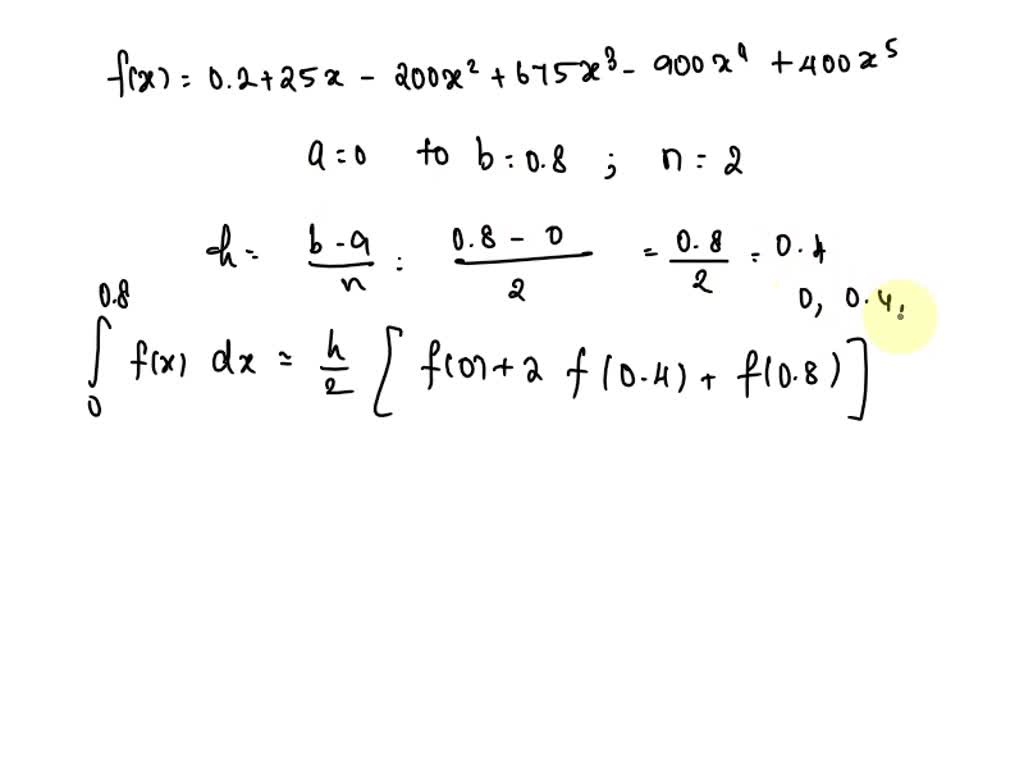 f(x) = 0.2 + 25x - 200x² + 675x³ - 900x⁴ + 400x⁵
a = 0 to b = 0.8 ; n = 2
h = (b - a)/n = (0.8 - 0)/2 = 0.8/2 = 0.4
0, 0.4,
∫₀^0.8 f(x) dx = h/2 [f(0) + 2 f(0.4) + f(0.8)]